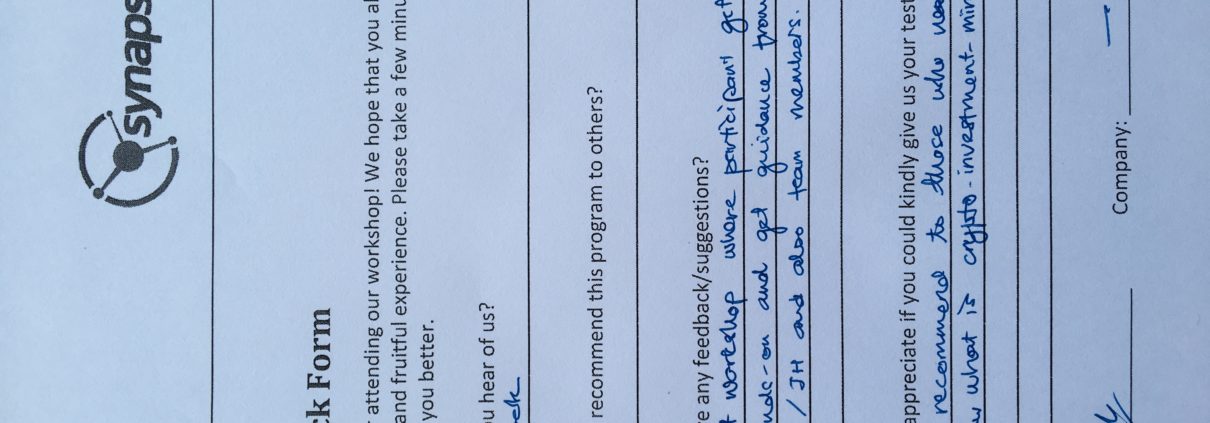 synaps
ck Form
attending our workshop! We hope that you al
and fruitful experience. Please take a few minu
you better.
u hear of us?
recommend this program to others?
re any feedback/suggestions?
t workshop where participant get
nds-on and get guidance from
/ JH and also team members.
appreciate if you could kindly give us your test
recommend to those who
w what is crypto-investment-min
Company: